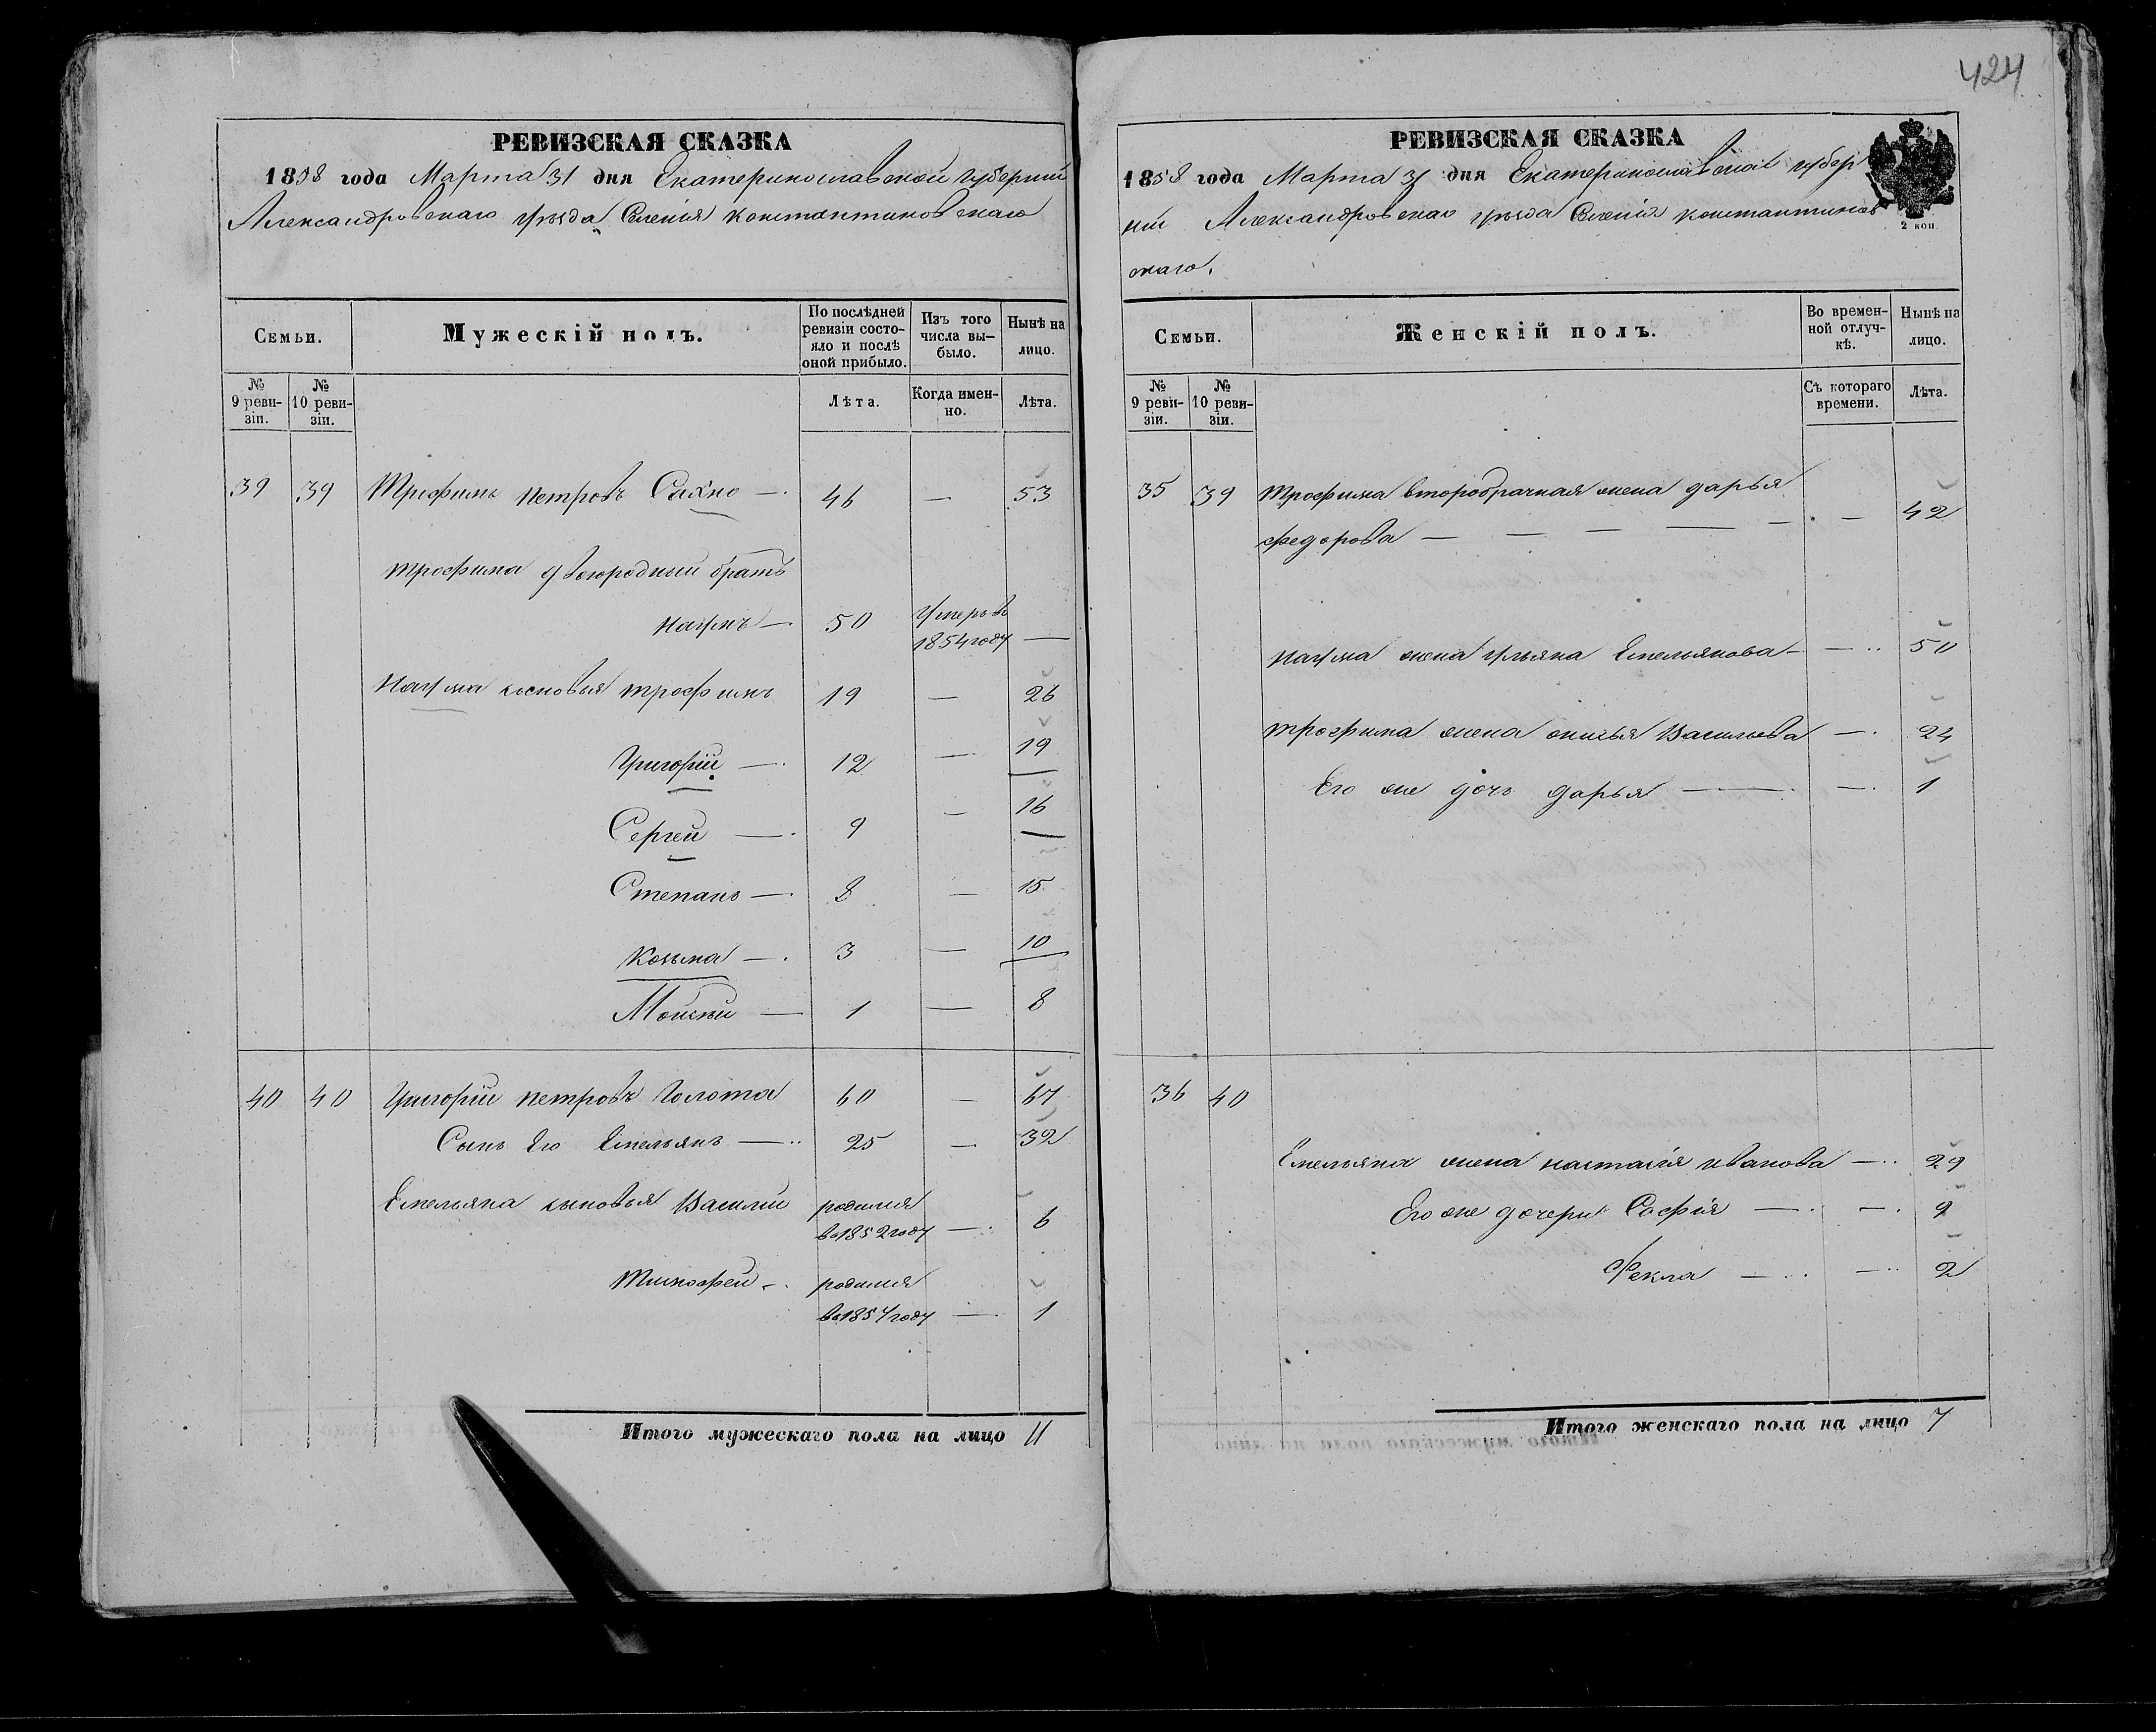 424
РЕВИЗСКАЯ СКАЗКА
1858 года Марта 31 дня Екатеринославской губернии
Александровскаго уезда Селенія константиновскаго
Семьи.
Мужескій полъ.
По послѣдней ревизіи состо-яло и послѣ оной прибыло.
Изъ того числа вы-было.
Нынѣ на лицо.
№ 9 реви-зіи.
№ 10 реви-зіи.
Лѣта.
Когда имен-но.
Лѣта.
39 39 Трофимъ петровъ Сахно — 46 — 53
трофима двоюродный братъ
наумъ — 50 Умеръ въ 1854 году —
наума сыновья трофимъ 19 — 26
Григорій — 12 — 19
Сергей — 9 — 16
Степанъ — 8 — 15
козьма — 3 — 10
Моисѣй — 1 — 8
40 40 Григорій петровъ Голота 60 — 67
Сынъ Его Емельянъ — 25 — 32
Емельяна сыновья Василий родился
во 1852 году — 6
Тимофей — родился
во 1857 году — 1
Итого мужескаго пола на лицо 11
РЕВИЗСКАЯ СКАЗКА
1858 года Марта 31 дня Екатеринославской губер
ніи Александровскаго уезда Селенія константинов
скаго.
2 коп.
Семьи.
Женскій полъ.
Во времен-ной отлуч-кѣ.
Нынѣ на лицо.
№ 9 реви-зіи.
№ 10 реви-зіи.
Съ котораго времени.
Лѣта.
35 39 трофима второбрачная жена дарья
федорова — — — — — — 42
наума жена ульяна Емельянова — — 50
трофима жена Васильева — 24
Его же дочь дарья — — 1
36 40
Емельяна жена настасія иванова — 29
Его же дочери Софія — — 9
Фекла — — 2
Итого женскаго пола на лицо 7